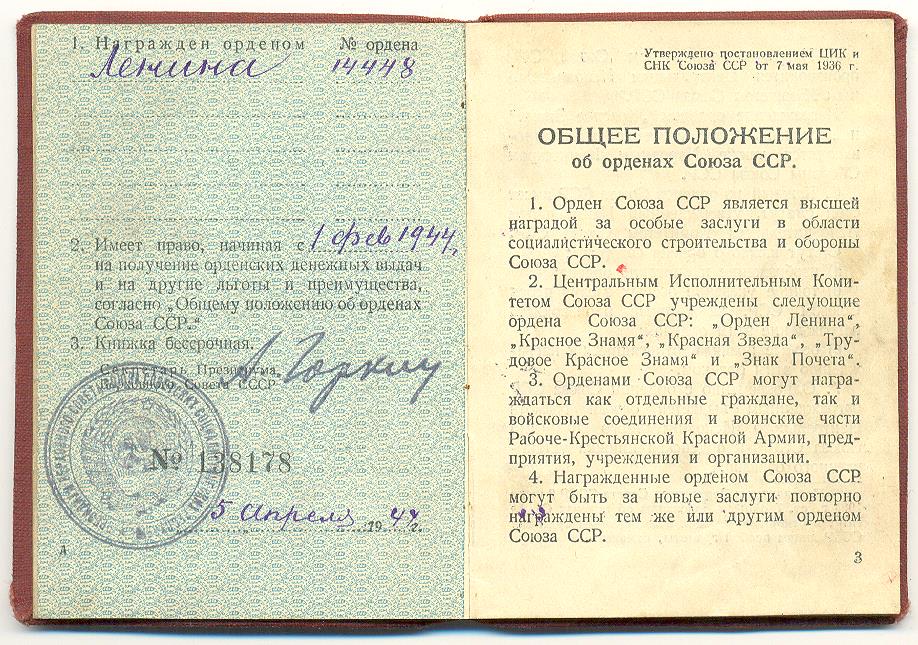 1. Награжден орденом № ордена
Ленина 14448
2. Имеет право, начиная с 1 фев 1944 г.
на получение орденских денежных выдач
и на другие льготы и преимущества,
согласно „Общему положению об орденах
Союза ССР."
3. Книжка бессрочная.
Секретарь Президиума
Верховного Совета СССР
А Горкин
№ 138178
5 апреля 1944 г.
А
Утверждено постановлением ЦИК и
СНК Союза ССР от 7 мая 1936 г.
ОБЩЕЕ ПОЛОЖЕНИЕ
об орденах Союза ССР.
1. Орден Союза ССР является высшей
наградой за особые заслуги в области
социалистического строительства и обороны
Союза ССР.
2. Центральным Исполнительным Коми-
тетом Союза ССР учреждены следующие
ордена Союза ССР: „Орден Ленина",
„Красное Знамя", „Красная Звезда", „Тру-
довое Красное Знамя" и „Знак Почета".
3. Орденами Союза ССР могут награ-
ждаться как отдельные граждане, так и
войсковые соединения и воинские части
Рабоче-Крестьянской Красной Армии, пред-
приятия, учреждения и организации.
4. Награжденные орденом Союза ССР
могут быть за новые заслуги повторно
награждены тем же или другим орденом
Союза ССР.
3